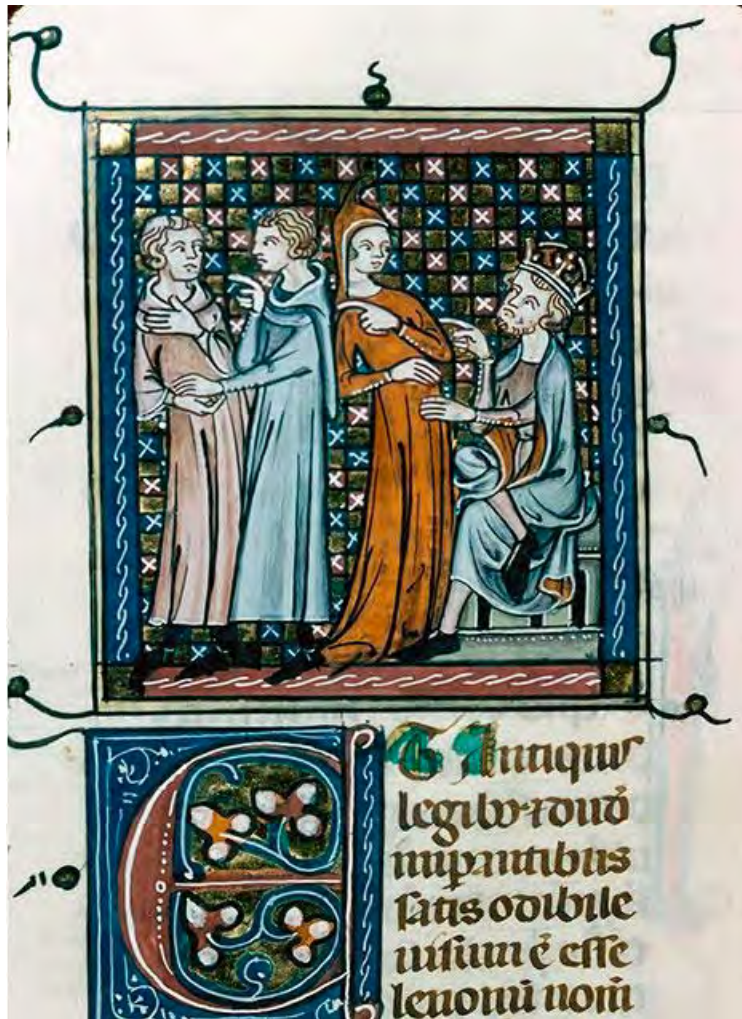 ET Antiquis
legibꝰ ⁊ dudū
impantibus
satis odibile
uisum ē esse
lenonū nom̄